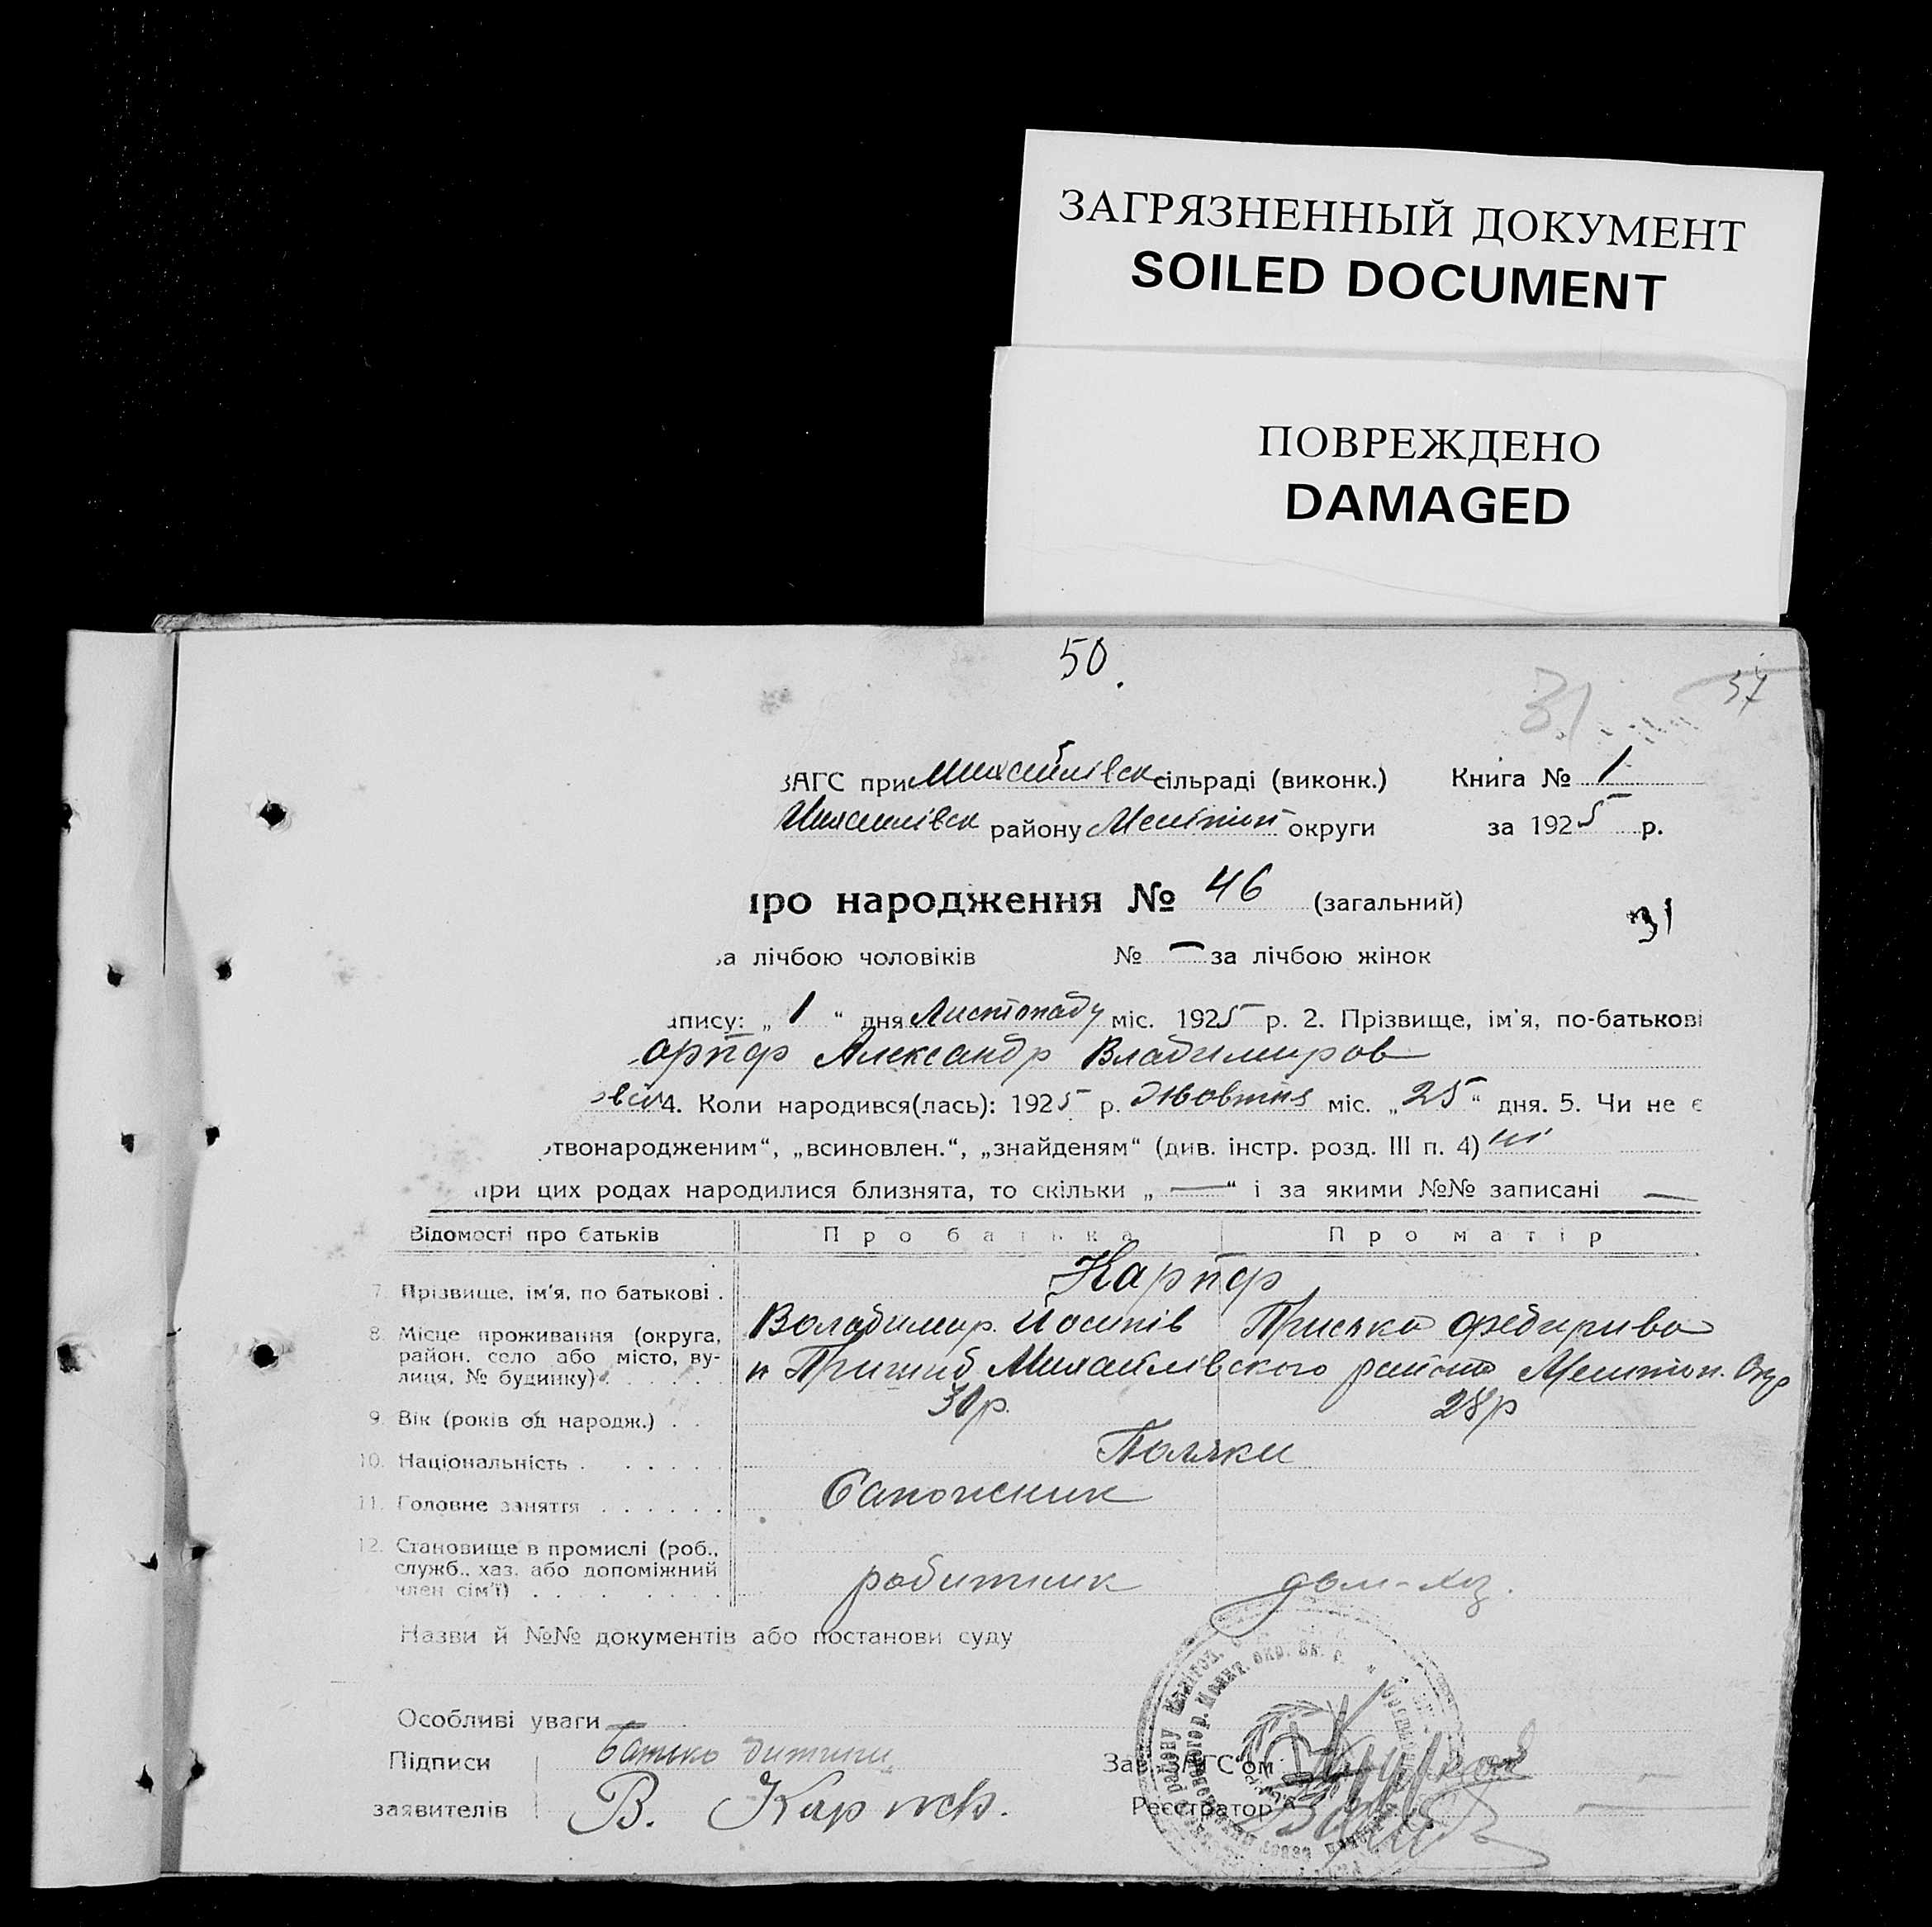 ЗАГРЯЗНЕННЫЙ ДОКУМЕНТ
SOILED DOCUMENT
ПОВРЕЖДЕНО
DAMAGED
50.
31 37
ЗАГС при Михайлівск сільраді (виконк.) Книга № 1
Михайлівск району Меліtop округи за 1925 р.
про народження № 46 (загальний)
31
за лічбою чоловіків № — за лічбою жінок
апису: „ 1 “ дня Листопаду міс. 1925 р. 2. Прізвище, ім'я, по-батькові
арпф Александр Владимиров
4. Коли народився(лась): 1925 р. Жовтня міс. „25“ дня. 5. Чи не є
ртвонародженим“, „всиновлен.“, „знайденям“ (див. інстр. розд. III п. 4) ні
при цих родах народилися близнята, то скільки „ — “ і за якими №№ записані —
Відомості про батьків Про батька Про матір
7. Прізвище, ім'я, по батькові . Карпф
Володимир Йосипів Приська
8. Місце проживання (округа,
район, село або місто, ву-
лиця, № будинку) Пришиб Михайлівского района Мелітоп. Окр
9. Вік (років од народж.) . . 30р. 28р
10. Національність . Поляки
11. Головне заняття Сапожник
12. Становище в промислі (роб.,
служб., хаз. або допоміжний
член сім'ї) робитник дом-хоз.
Назви й №№ документів або постанови суду
Особливі уваги
Підписи Батько дитини
заявителів В. Карпф.
Зав. ЗАГС'ом
Реєстратор